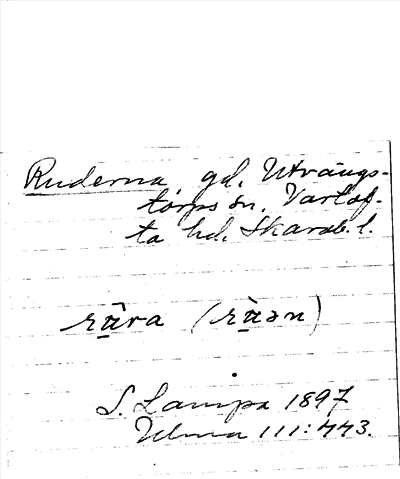 Ruderna, gd. Utvängs-
torps sn. Vartof-
ta hd. Skarab. l.
rṳ̂ra (rṳ̀ən)
S. Lampa 1897
Ulma 111:443.